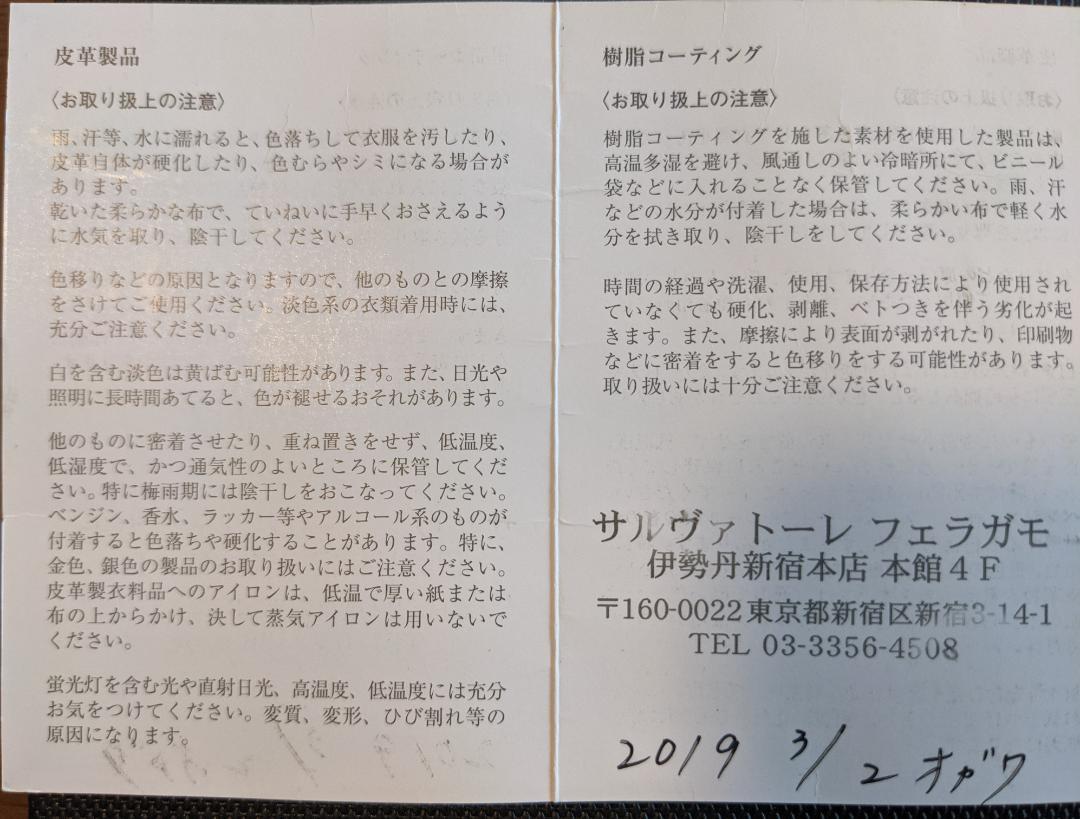 皮革製品
〈お取り扱上の注意〉
雨、汗等、水に濡れると、色落ちして衣服を汚したり、
皮革自体が硬化したり、色むらやシミになる場合が
あります。
乾いた柔らかな布で、ていねいに手早くおさえるよう
に水気を取り、陰干してください。
色移りなどの原因となりますので、他のものとの摩擦
をさけてご使用ください。淡色系の衣類着用時には、
充分ご注意ください。
白を含む淡色は黄ばむ可能性があります。また、日光や
照明に長時間あてると、色が褪せるおそれがあります。
他のものに密着させたり、重ね置きをせず、低温度、
低湿度で、かつ通気性のよいところに保管してくだ
さい。特に梅雨期には陰干しをおこなってください。
ベンジン、香水、ラッカー等やアルコール系のものが
付着すると色落ちや硬化することがあります。特に、
金色、銀色の製品のお取り扱いにはご注意ください。
皮革製衣料品へのアイロンは、低温で厚い紙または
布の上からかけ、決して蒸気アイロンは用いないで
ください。
蛍光灯を含む光や直射日光、高温度、低温度には充分
お気をつけてください。変質、変形、ひび割れ等の
原因になります。
樹脂コーティング
〈お取り扱上の注意〉
樹脂コーティングを施した素材を使用した製品は、
高温多湿を避け、風通しのよい冷暗所にて、ビニール
袋などに入れることなく保管してください。雨、汗
などの水分が付着した場合は、柔らかい布で軽く水
分を拭き取り、陰干しをしてください。
時間の経過や洗濯、使用、保存方法により使用され
ていなくても硬化、剥離、ベトつきを伴う劣化が起
きます。また、摩擦により表面が剥がれたり、印刷物
などに密着をすると色移りをする可能性があります。
取り扱いには十分ご注意ください。
サルヴァトーレ フェラガモ
伊勢丹新宿本店 本館4F
〒160-0022東京都新宿区新宿3-14-1
TEL 03-3356-4508
2019 3/2 オガワ